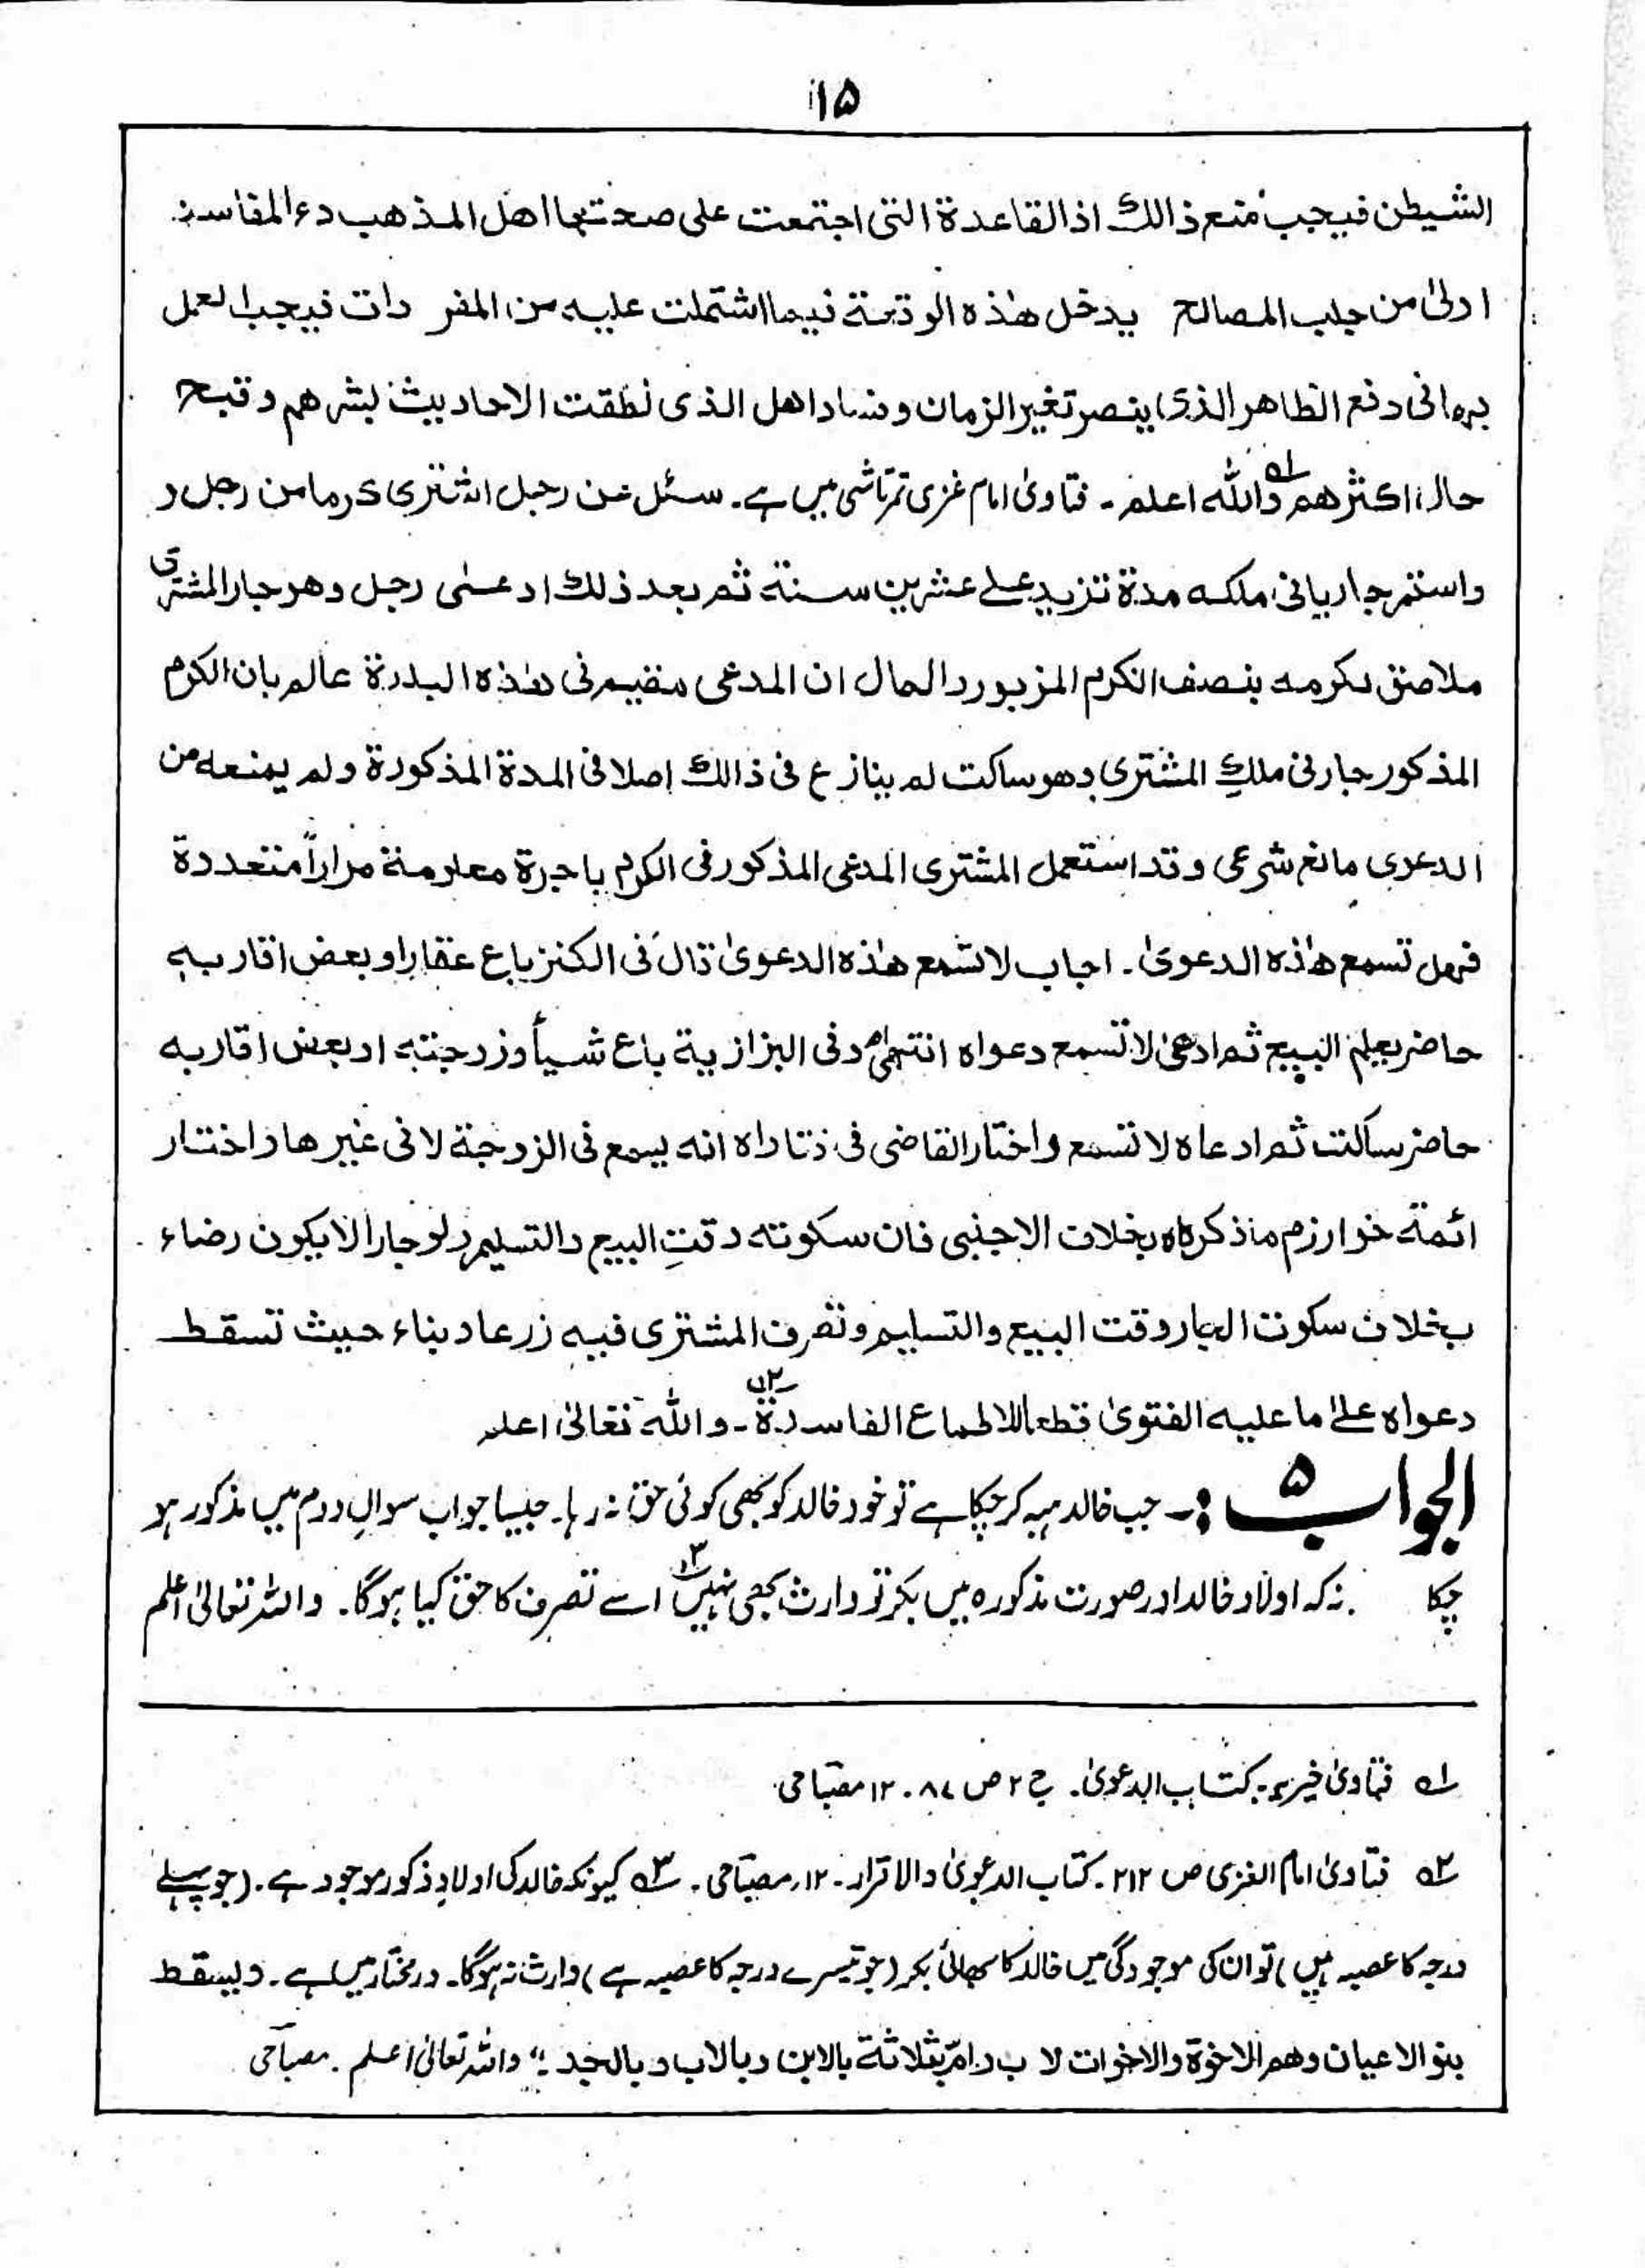 ۱۱۵
الشیطن فیجب منع ذالك اذ القاعدة التی اجتمعت علی صحتہا اهل المذهب دء المفاسد
اولیٰ من جلب المصالح یدخل هٰذہ الوقعة فیما اشتملت علیہ من المفر دات فیجب العمل
بہا فی دفع الظاهر الذی ینصر تغیر الزمان و فساد اهل الذی نطقت الاحادیث بشرهم و قبح
حال اکثرهم واللّٰہ اعلم ۔ فتاویٰ امام غزی تمرتاشی میں ہے۔ سئل عن رجل اشتری کرما من رجل و
واستمر جاریا فی ملکہ مدة تزید علے عشرین سنة ثم بعد ذلك ادعیٰ رجل وهو جار المشتری
ملاصق لکرمہ بنصف الکرم المزبور والحال ان المدعی مقیم فی هٰذہ البلدة عالم بان الکرم
المذکور جار فی ملكِ المشتری وهو ساکت لم ینازع فی ذالك اصلا فی المدة المذکورة ولم یمنعہ من
الدعوی مانع شرعی وقد استعمل المشتری المدعی المذکور فی الکرم باجرة معلومة مراراً متعددة
فہل تسمع هٰذہ الدعویٰ ۔ اجاب لا تسمع هٰذہ الدعویٰ قال فی الکنز باع عقارا و بعض اقاربہ
حاضر یعلم البیع ثم ادعیٰ لا تسمع دعواہ انتہیٰ و فی البزازیة باع شیأ وزوجتہ او بعض اقاربہ
حاضر ساکت ثم ادعاہ لا تسمع واختار القاضی فی فتاواہ انہ یسمع فی الزوجة لا فی غیرها واختار
ائمة خوارزم ما ذکرناہ بخلاف الاجنبی فان سکوتہ وقتِ البیع والتسلیم ولو جارا لا یکون رضاء
بخلاف سکوت الجار وقت البیع والتسلیم وتصرف المشتری فیہ زرعا و بناء حیث تسقط
دعواہ علےٰ ما علیہ الفتویٰ قطعا للاطماع الفاسدة ۔ واللّٰہ تعالیٰ اعلم
الجواب ۵ :۔ جب خالد ہبہ کرچکا ہے تو خود خالد کو بھی کوئی حق نہ رہا۔ جیسا جواب سوالِ دوم میں مذکور ہو
چکا . نہ کہ اولاد خالد اور صورت مذکورہ میں بکر تو وارث بھی نہیں اسے تصرف کا حق کیا ہوگا. واللہ تعالیٰ اعلم
لہ فتاویٰ خیریہ. کتاب الدعویٰ. ج ۲ ص ۸۷ . ۱۲ مصباحی
۲ہ فتاویٰ امام الغزی ص ۲۱۲ . کتاب الدعویٰ والاقرار ۔ ۱۲، مصباحی . ۳ہ کیونکہ خالد کی اولادِ ذکور موجود ہے . (جو پہلے
درجہ کا عصبہ ہیں) تو ان کی موجودگی میں خالد کا بھائی بکر (جو تیسرے درجہ کا عصبہ ہے) وارث نہ ہوگا۔ در مختار میں ہے ۔ ویسقط
بنو الاعیان وهم الاخوة والاخوات لا ب و امّ بثلاثة بالابن و بالاب و بالجد ؛" واللہ تعالیٰ اعلم . مصباحی